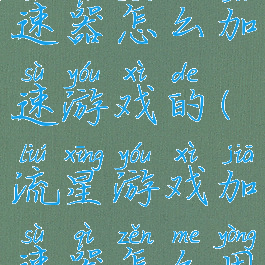 速器怎么加
sù yóu xì de
速游戏的(
liú xīng yóu xì jiā
流星游戏加
sù qì zěn me yòng
速器怎么用